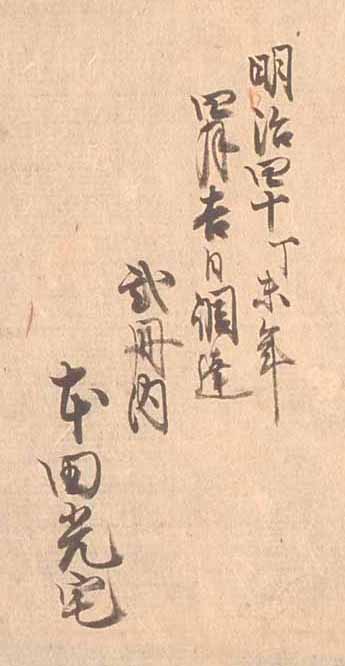 明治四十丁未年
四月吉日調達
弐冊内
本田光宅